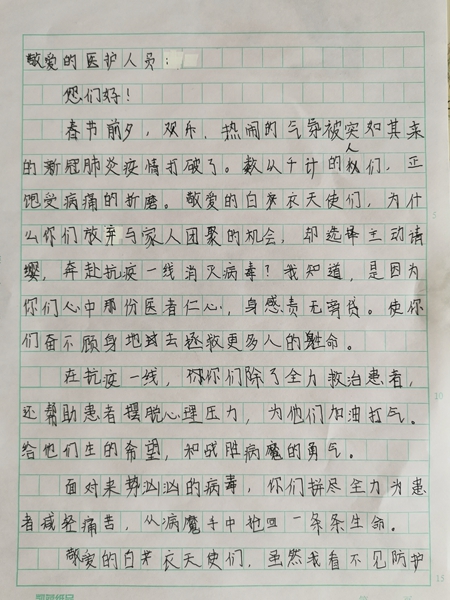 敬爱的医护人员：
您们好！
春节前夕，欢乐、热闹的气氛被突如其来
的新冠肺炎疫情打破了。数以千计的人们，正
饱受病痛的折磨。敬爱的白衣天使们，为什
么你们放弃与家人团聚的机会，却选择主动请
缨，奔赴抗疫一线消灭病毒？我知道，是因为
你们心中那份医者仁心，身感责无旁贷。使你
们奋不顾身地去拯救更多人的生命。
在抗疫一线，你们除了全力救治患者，
还帮助患者摆脱心理压力，为他们加油打气。
给他们生的希望，和战胜病魔的勇气。
面对来势汹汹的病毒，你们拼尽全力为患
者减轻痛苦，从病魔手中抢回一条条生命。
敬爱的白衣天使们，虽然我看不见防护
5
10
15